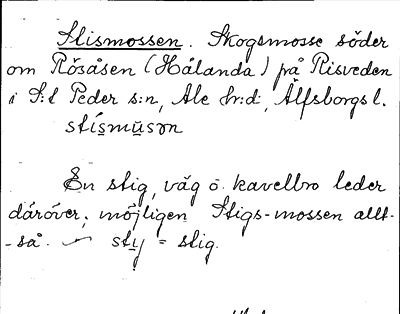 Slismossen. Skogsmosse söder
om Rösåsen (Hålanda) på Risveden
i S:t Peder s:n, Ale h:d, Älfsborgs l.
stísmūsɔn
En stig, väg o. kavelbro leder
däröver; möjligen Stigs-mossen allt-
-så. sty = stig.